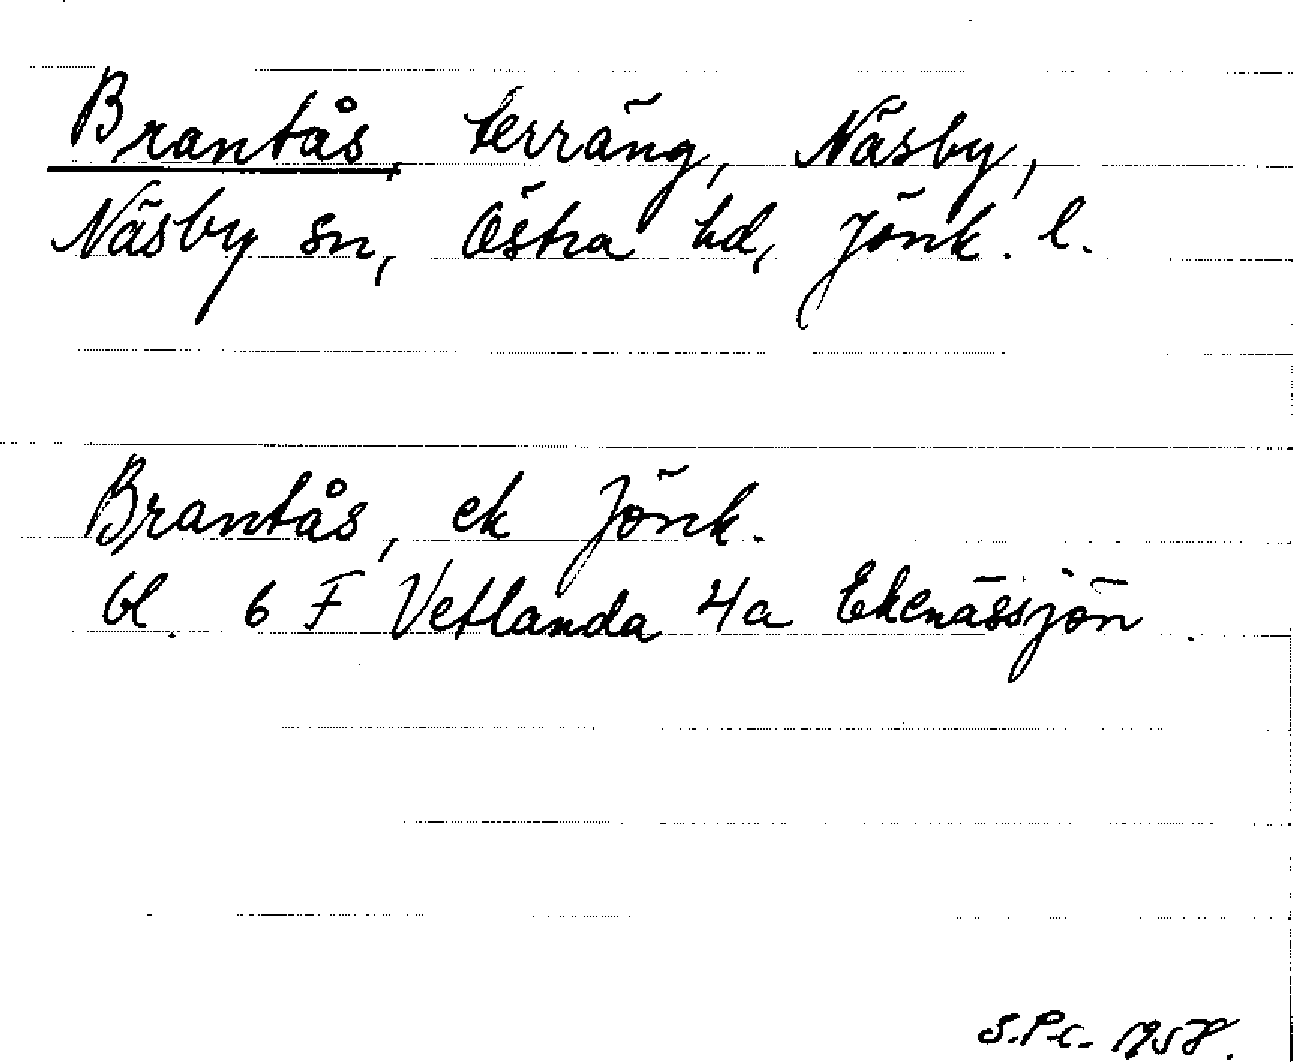 Brantås, terräng, Näsby,
Näsby sn, Östra hd, Jönk. l.
Brantås, ek Jönk.
bl. 6 F Vetlanda 4a Ekenässjön.
S.P-c. 1958.